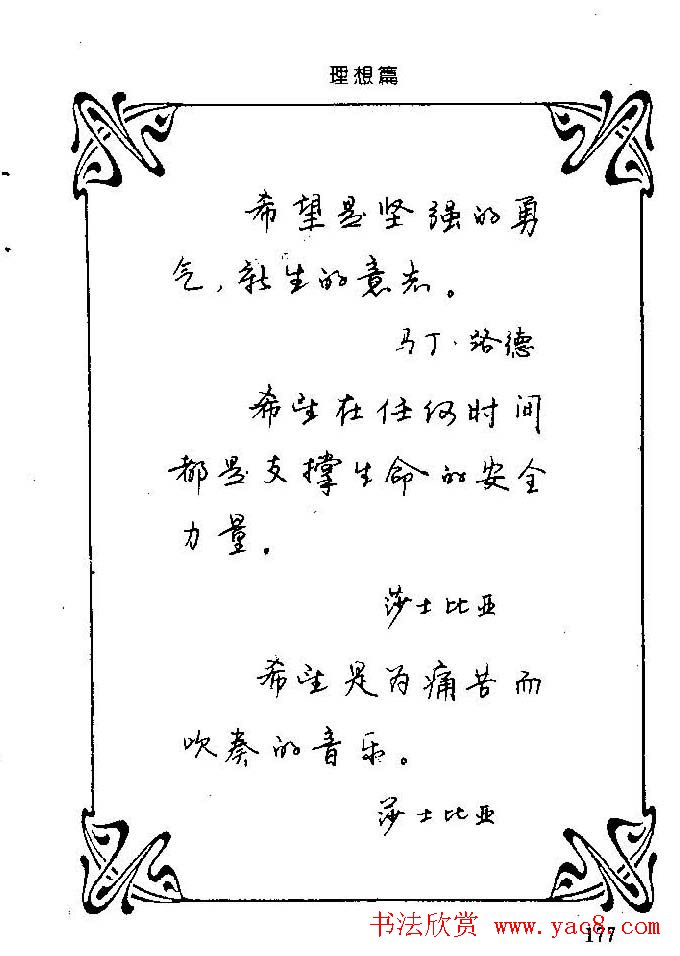 理想篇
希望是坚强的勇
气，新生的意志。
马丁·路德
希望在任何时间
都是支撑生命的安全
力量。
莎士比亚
希望是为痛苦而
吹奏的音乐。
莎士比亚
书法欣赏 www.yac8.com
177